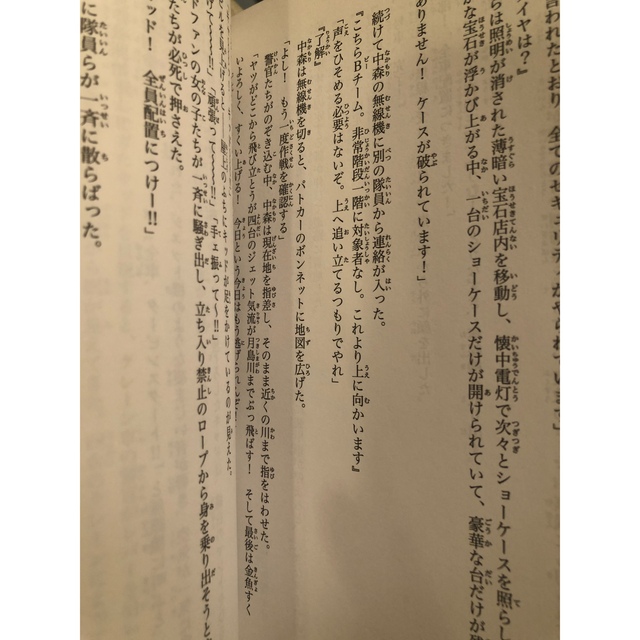 言われたとおり、全てのセキュリティがやられています」
イヤは？』
らは照明が消された薄暗い宝石店内を移動し、懐中電灯で次々とショーケースを照らし
な宝石が浮かび上がる中、一台のショーケースだけが開けられていて、豪華な台だけが残
ありません！　ケースが破られています！」
続けて中森の無線機に別の隊員から連絡が入った。
『こちらBチーム。非常階段一階に対象者なし。これより上に向かいます』
「声をひそめる必要はないぞ。上へ追い立てるつもりでやれ」
『了解』
中森は無線機を切ると、パトカーのボンネットに地図を広げた。
「よし！　もう一度作戦を確認する」
警官たちがのぞき込む中、中森は現在地を指差し、そのまま近くの川まで指をはわせた。
「ヤツがどこから飛び立とうが四台のジェット気流が月島川までぶっ飛ばす！　そして最後は金魚すく
いよろしく、すくい上げる！　今日という今日はもう逃げられんぞ！
キッドが足をかけているのが見えた。
げて〜〜!!」「頑張って〜〜!!」「手ェ振って〜!!」
ドファンの女の子たちが一斉に騒ぎ出し、立ち入り禁止のロープから身を乗り出そうと
たちが必死で押さえた。
ッド！　全員配置につけー!!」
に隊員らが一斉に散らばった。